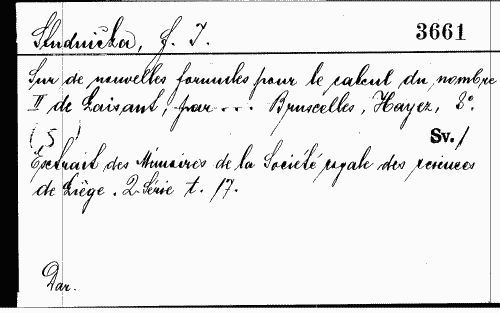 Studnička, F. J. 3661
Sur de nouvelles formules pour le calcul du nombre
II de Laisant, par ... Bruscelles, Hayez, 8°.
(5) Sv. /
Esctrait des Mémoires de la Société royale des sciences
de Liège. 2 Série t. 17.
Dar.